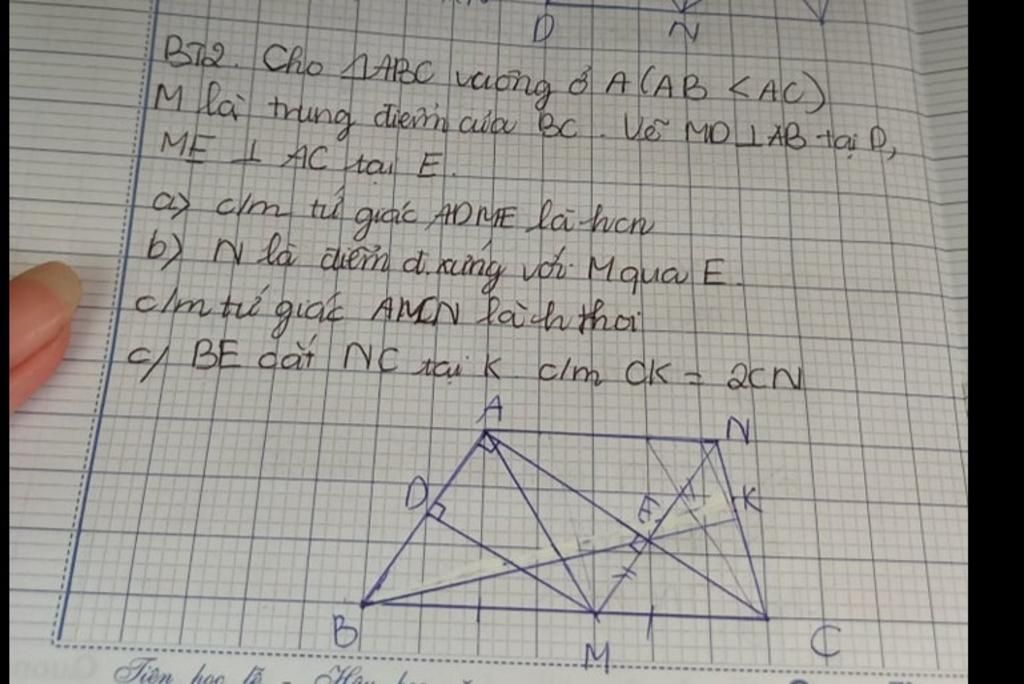 D N
BT2. Cho △ABC vuông ở A (AB < AC)
M là trung điểm của BC. Vẽ MD ⊥ AB tại D,
ME ⊥ AC tại E.
a) c/m tứ giác ADME là hcn
b) N là điểm đ.xứng với M qua E.
c/m tứ giác AMCN là h thoi
c) BE cắt NC tại K c/m CK = 2CN
A N
D E K
B M C
Tiên học lễ - Hậu học